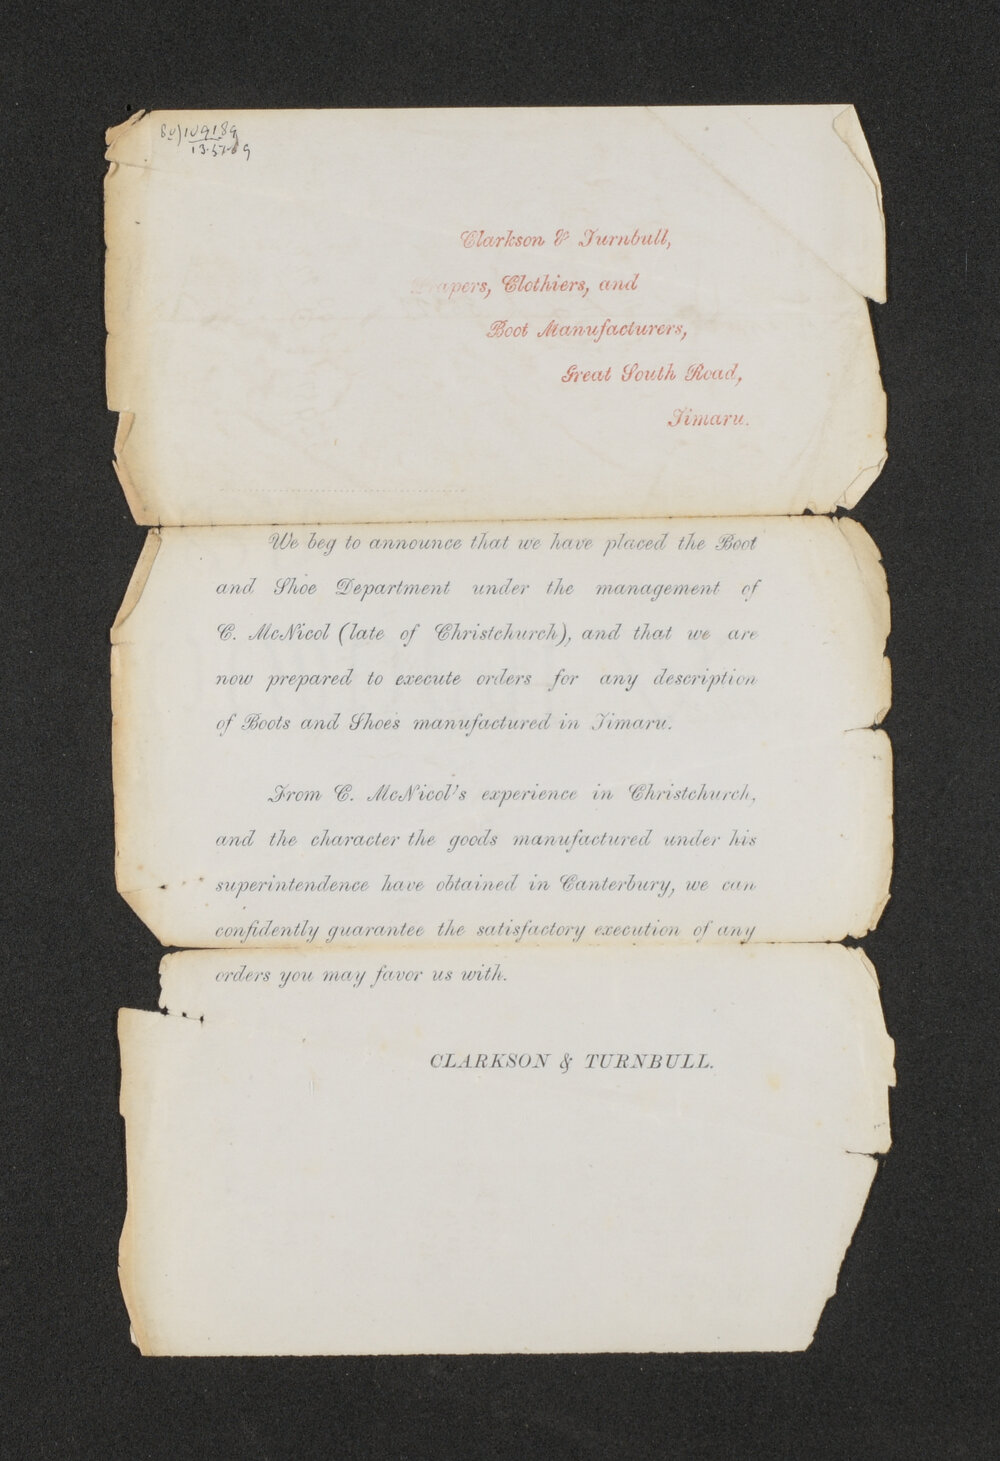 Clarkson & Turnbull,
Drapers, Clothiers, and
Boot Manufacturers,
Great South Road,
Timaru.
We beg to announce that we have placed the Boot
and Shoe Department under the management of
C. McNicol (late of Christchurch), and that we are
now prepared to execute orders for any description
of Boots and Shoes manufactured in Timaru.
From C. McNicol's experience in Christchurch,
and the character the goods manufactured under his
superintendence have obtained in Canterbury, we can
confidently guarantee the satisfactory execution of any
orders you may favor us with.
CLARKSON & TURNBULL.